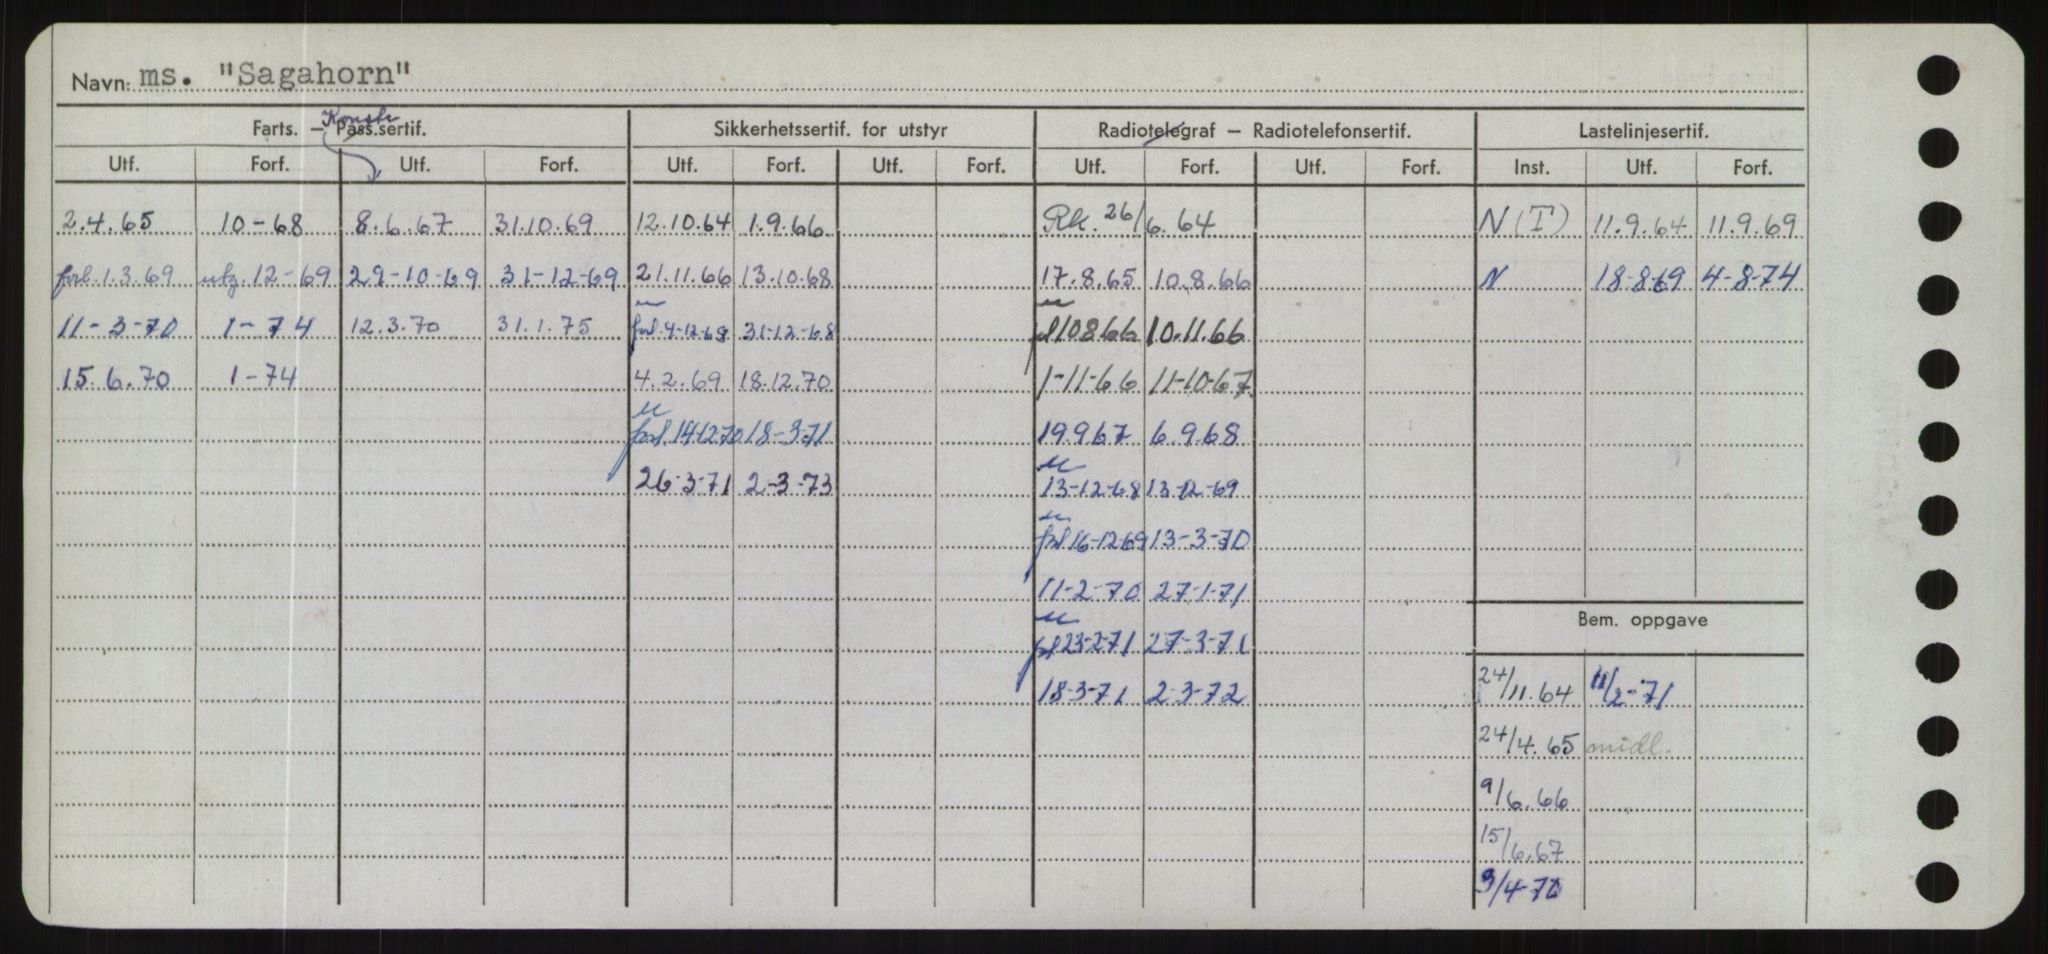 Navn: ms. "Sagahorn"
Konstr
Farts. – Pass.sertif. Sikkerhetssertif. for utstyr Radiotelegraf – Radiotelefonsertif. Lastelinjesertif.
Utf. Forf. Utf. Forf. Utf. Forf. Utf. Forf. Utf. Forf. Utf. Forf. Inst. Utf. Forf.
2.4.65 10-68 8.6.67 31.10.69 12.10.64 1.9.66 Rk. 26/6.64 N(T) 11.9.64 11.9.69
forl.1.3.69 utg.12-69 29-10-69 31-12-69 21.11.66 13.10.68 17.8.65 10.8.66 N 18-8-69 4-8-74
11-3-70 1-74 12.3.70 31.1.75 forl.4-12-68 31-12-68 10866 10.11.66
15.6.70 1-74 4.2.69 18.12.70 1-11-66 11-10-67
forl.14-12-70 18-3-71 19.9.67 6.9.68
26-3-71 2-3-73 13-12-68 13-12-69
forl 16-12-69 13-3-70
11-2-70 27-1-71
Bem. oppgave
forl 23-2-71 27-3-71
18-3-71 2-3-72 24/11.64 11/2-71
24/4.65 midl.
9/6.66
15/6.67
3/4-70